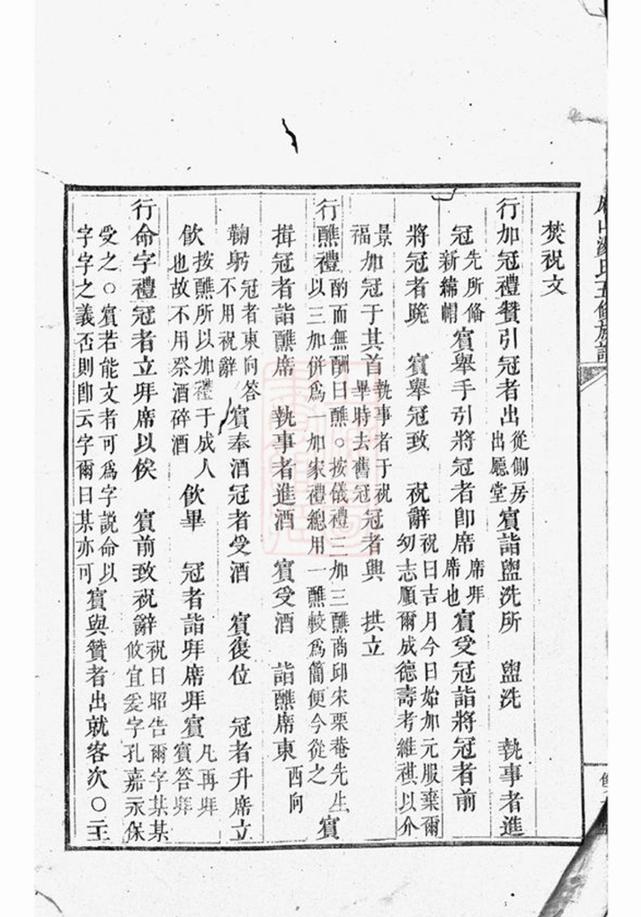 焚祝文
行加冠禮贊引冠者出從側房出廳堂賓詣盥洗所 盥洗 執事者進
冠先所俻新綿帽賓舉手引將冠者卽席席拜席也賓受冠詣將冠者前
將冠者跪 賓舉冠致 祝辭祝曰吉月今日始加元服棄爾㓜志順爾成德壽考維祺以介
景福加冠于其首執事者于祝畢時去舊冠冠者興 拱立
行醮禮酌而無酬曰醮○按儀禮三加三醮商邱宋栗菴先生以三加併為一加家禮總用一醮較為簡便今從之賓
揖冠者詣醮席 執事者進酒 賓受酒 詣醮席東西向
鞠躬冠者東向答不用祝辭賓奉酒冠者受酒 賓復位 冠者升席立
飲按醮所以加禮于成人也故不用祭酒碎酒飲畢 冠者詣拜席拜賓凡再拜賓答拜
行命字禮冠者立拜席以俟 賓前致祝辭祝曰昭告爾字某某攸宜爰字孔嘉永保
受之○賓若能文者可為字說命以字字之義否則卽云字爾曰某亦可賓與贊者出就客次○主
五修族譜